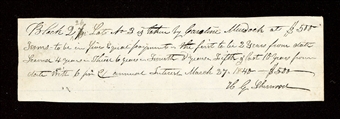 Block 2, Lot No 3 is taken by Caroline Murdock at $500
Terms to be in five Equal payments – the first to be 2 Years from date
Second 4 years – Third 6 years – Fourth 8 years Fifth & last 10 years from
date With 6 pr Ct annual Interest March 27. 1840 — $500
H G Sherwood